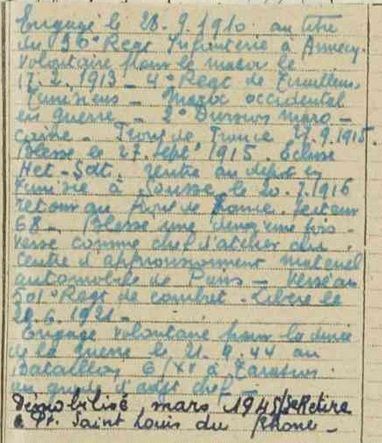 Engagé le 26.9.1910 au titre
du 36° Regt Infanterie à Annecy
Volontaire pour le maroc le
17.2.1913 - 4° Regt de Tirailleurs
Tunisiens - Maroc occidental
en guerre - 2° Division maro-
caine - Front de France 27.9.1915.
Blessé le 27. Sept. 1915. Eclisse
Het-Sas. rentre au dépot en
Tunisie à Sousse le 20.7.1916
retour au de France. Secteur
68 - Blessé une deuxième fois.
versé comme chef d'atelier au
centre d'approvisionment matériel
automobile de Paris - Versé au
501° Regt de combat. Libéré le
28.6.1921 -
Engagé volontaire pour la durée
de la guerre le 21.9.44 au
Bataillon 6/XV à Tarascon
au grade d'adjt chef -
Démobilisé mars 1945 / Se Retire
à Pt. Saint Louis du Rhône -